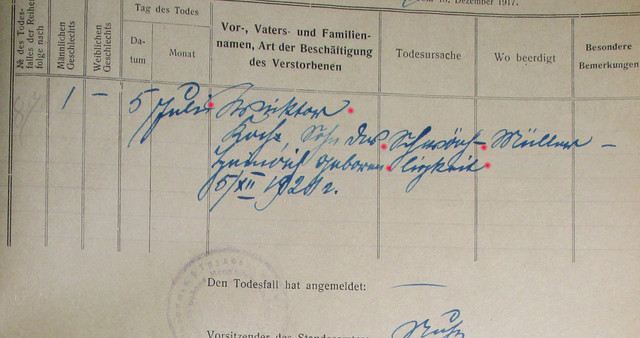 10. Dezember 1917.
№ des Todes-
falles der Reihen-
folge nach
Männlichen
Geschlechts
Weiblichen
Geschlechts
Tag des Todes
Da-
tum
Monat
Vor-, Vaters- und Familien-
namen, Art der Beschäftigung
des Verstorbenen
Todesursache
Wo beerdigt
Besondere
Bemerkungen
1 — 5 Juli Wiktor
Koch, Sohn des Schwäch- Müller —
Heinrich geboren ligkeit
5/XII 1921 r.
Den Todesfall hat angemeldet: —
Vorsitzender des Standesamtes: